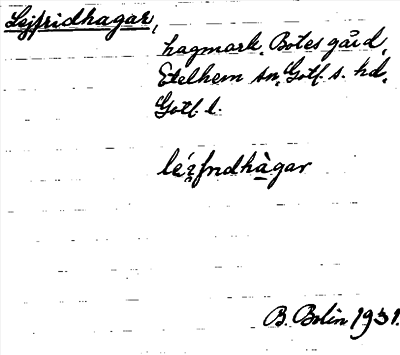 Lejfridhagar,
hagmark, Botes gård,
Etelhem sn, Gotl. s. hd,
Gotl. l.
léjfridhàgar
B. Bolin 1931.